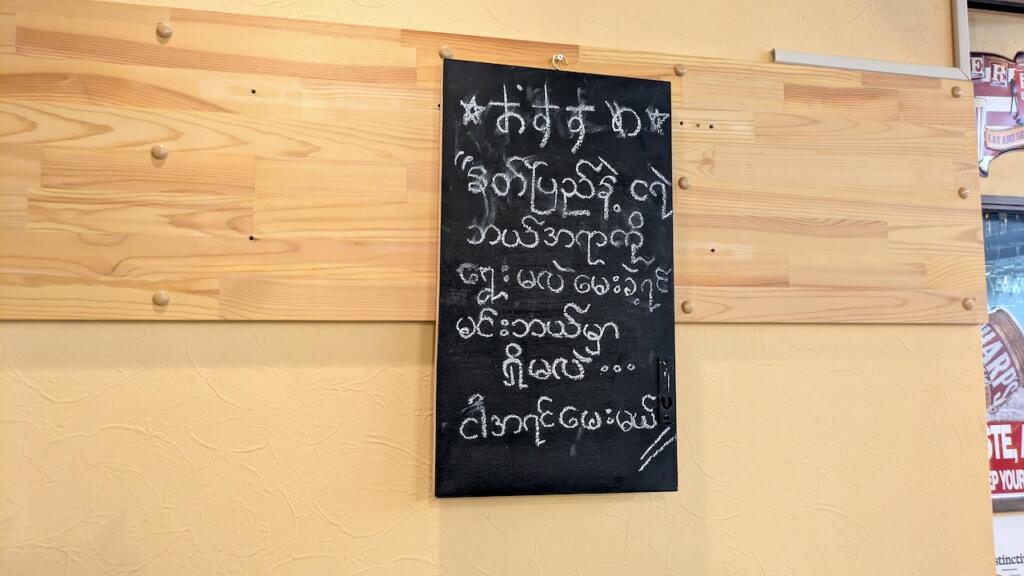 "ဒိတ်ပြည်နဲ့ ငလဲ
ဘယ်အရာကို
ရွေးမလဲ မေးခဲ့ရင်
မင်းဘယ်မှာ
ရှိမလဲ ...
ငါအရင်မေးမယ်
EAT AND
HARPS
STE,
EP YOUR
stincti